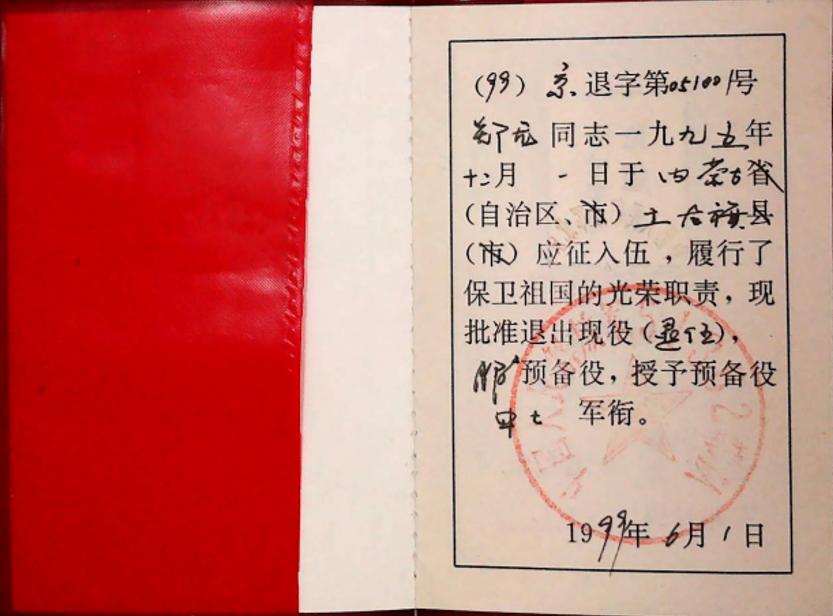 (99) 京退字第051001号
郑龙同志一九九五年
十二月 一日于内蒙古省
(自治区、市) 土右旗县
(市) 应征入伍，履行了
保卫祖国的光荣职责，现
批准退出现役(退伍)，
服预备役，授予预备役
中士 军衔。
1999年6月1日